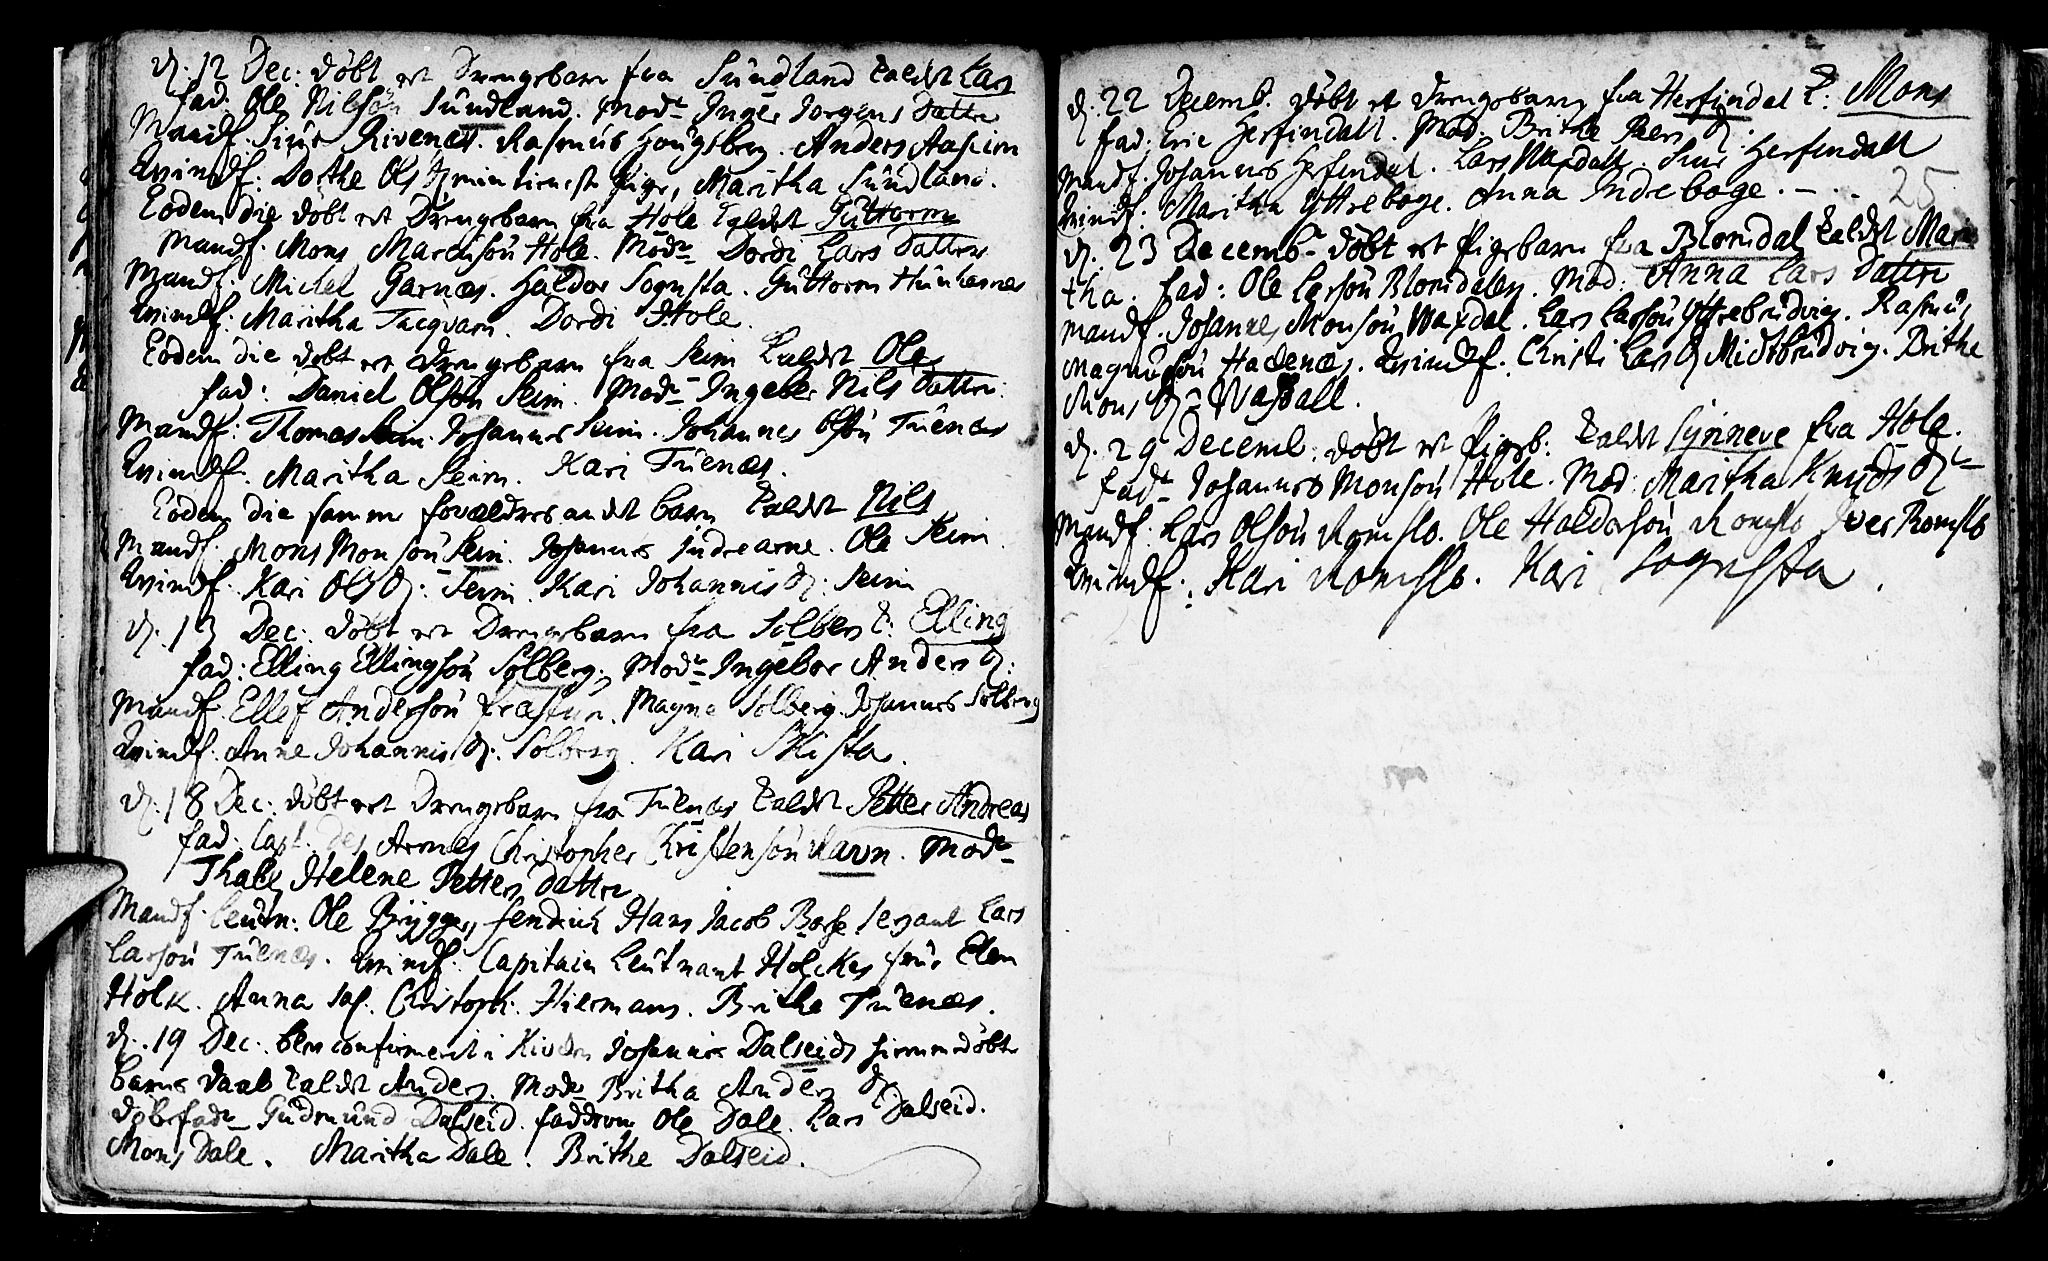 d. 12 Dec: døbt et Drengebarn fra Sundland kaldet Lars
fad. Ole Nilsøn Sundland. Modr Inger Jorgens Datter
Mandf. Siur Rivenæs. Rasmus Hougsberg. Anders Aaseim
Qvindf: Dorthe Ols pige, Maritha Sundland.
Eodem die døbt et Drengebarn fra Hole kaldet Guttorm
Mandf. Mons Marcusøn Hole. Modr Dordi Lars Datter
Mandf. Michel Garnæs. Haldor Sognsta. Guttorm
Qvindf: Maritha Tacqvam. Dordi Hole.
Eodem die døbt et drengebarn fra Seim kaldet Ole
fad: Daniel Olsøn Seim. Modr Ingebor Nils Datter.
Mandf: Thomas Seim. Johannes Seim. Johannes Olsøn Tuenæs
Qvindf. Maritha Seim. Kari Tuenæs.
Eodem die samme forældres andet barn kaldet Nils
Mandf. Mons Monsøn Seim. Johannes Indrearne. Ole Seim.
Qvindf. Kari Ols D: Seim. Kari Johannis D. Seim
d. 13 Dec: døbt et Drengebarn fra Solberg k: Elling
fad: Elling Ellingsøn Solberg. Modr Ingebor Anders D:
Mandf. Ellef Andersøn Magne Solberg. Johannes Solberg
Qvindf. Anne Johannis D. Solberg. Kari
d. 18 Dec: døbt et Drengebarn fra Tuenæs kaldet Petter Andreas
fad: Capt. des Armes Christopher Christensøn Ravn. Modr
Thale Helene Petters Datter
Mandf. Leutn: Ole Brygger, fendrich Hans Jacob Serjant Lars
Larsøn Tuenæs. Qvindf: Capitain Leutnant Holckes frue Elen
Holk. Anna Christoph: Hiermans. Brithe Tuenæs.
d. 19 Dec. blev confirmeret i Kirken Johannes Dalseids hiemmedøbte
barns daab kaldet Anders. Modr Britha Anders D
døbefadr Gudmund Dalseid. faddere Ole Dale. Lars Dalseid.
Mons Dale. Maritha Dale. Brithe Dalseid.
d. 22 Decemb. døbt et drengebarn fra Herfindal k: Mons
fad: Eric Herfindall. Mod. Brithe Peers D:
Mandf. Johannes Herfindal. Lars Waxdall. Siur Herfindall
Qvindf. Maritha Yttreboge. Anna Indreboge.
25
d. 23 Decembr døbt et pigebarn fra Blomdal kaldet Mari
tha. fad: Ole Larsøn Blomdalen. Mod: Anna Lars Datter
Mandf. Johannes Monsøn Waxdal. Lars Larsøn Yttrebrudvig. Rasmus
Magnusøn Hadenæs. Qvindf: Christi Lars D Midtbrudvig. Brithe
Mons D: Waxdall.
d. 29 Decemb: døbt et pigeb: kaldet Synneve fra Hole.
fadr Johannes Monsøn Hole. Mod: Maritha Knuds D:
Mandf. Lars Olsøn Romslo. Ole Haldorsøn Romslo Iver Romslo
Qvindf: Kari Romslo. Kari Sognsta.